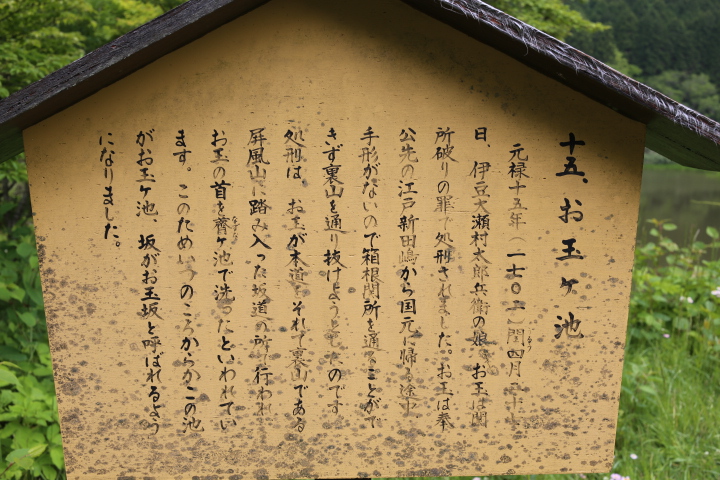 十五、お玉ヶ池
元禄十五年(一七〇二)閏四月二十
うるう
日、伊豆大瀬村太郎兵衛の娘、お玉は関
所破りの罪で処刑されました。お玉は奉
公先の江戸新田嶋から国元に帰る途中
手形がないので箱根関所を通ることがで
きず裏山を通り抜けようとしたのです
処刑は、お玉が本道をそれて裏山である
屏風山に踏み入った坂道の所で行われ
お玉の首を薺ヶ池で洗ったといわれてい
なずな
ます。このためいつのころからかこの池
がお玉ヶ池、坂がお玉坂と呼ばれるよう
になりました。